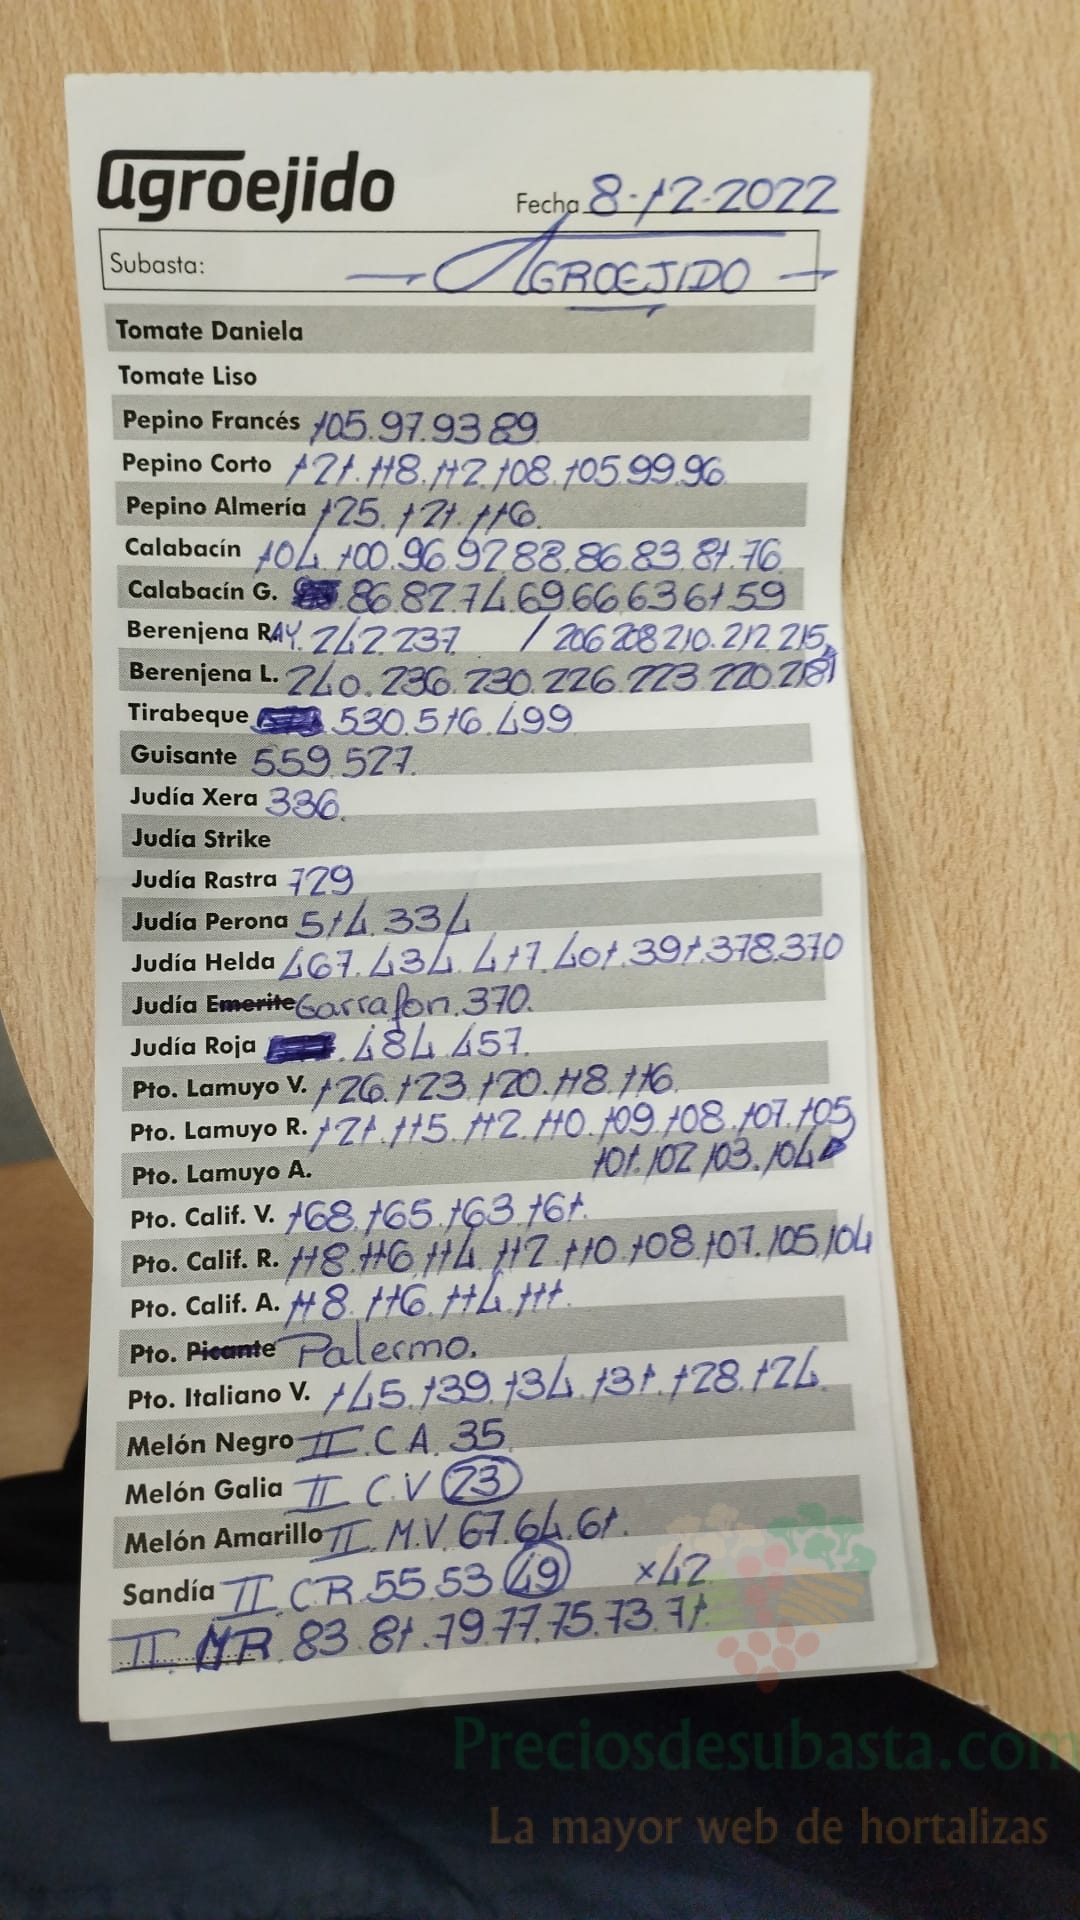 agroejido
Fecha 8-12-2022
Subasta: AGROEJIDO
Tomate Daniela
Tomate Liso
Pepino Francés 105.97.93 89
Pepino Corto 121.118.112.108.105.99.96.
Pepino Almería 125.121.116.
Calabacín 104.100.96.92 88.86.83.81.76.
Calabacín G. 86.82.74.69.66.63 61.59
Berenjena RAY. 242.237. / 206 208 210.212.215,
Berenjena L. 240.236.230.226.223.220.218
Tirabeque .530.516.499
Guisante 559.527.
Judía Xera 336.
Judía Strike
Judía Rastra 729
Judía Perona 514.334
Judía Helda 467.434.417.401.391.378.370
Judía Emerite Garrafon.370.
Judía Roja .484.457.
Pto. Lamuyo V. 126.123.120.118.116.
Pto. Lamuyo R. 121.115.112.110.109.108.107.105
Pto. Lamuyo A. 101.102 103.104
Pto. Calif. V. 168.165.163.161.
Pto. Calif. R. 118.116.114.112.110.108.107.105.104
Pto. Calif. A. 118.116.114.111.
Pto. Picante Palermo.
Pto. Italiano V. 145.139.134.131.128.124.
Melón Negro II.C A. 35
Melón Galia II C.V 23
Melón Amarillo II.M.V.67.64.61.
Sandía II.C R.55.53 49 x42
II. MR. 83.81.79.77.75.73.71.
Preciosdesubasta.com
La mayor web de hortalizas